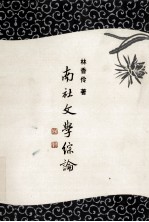 林香伶 著
南社文學綜論